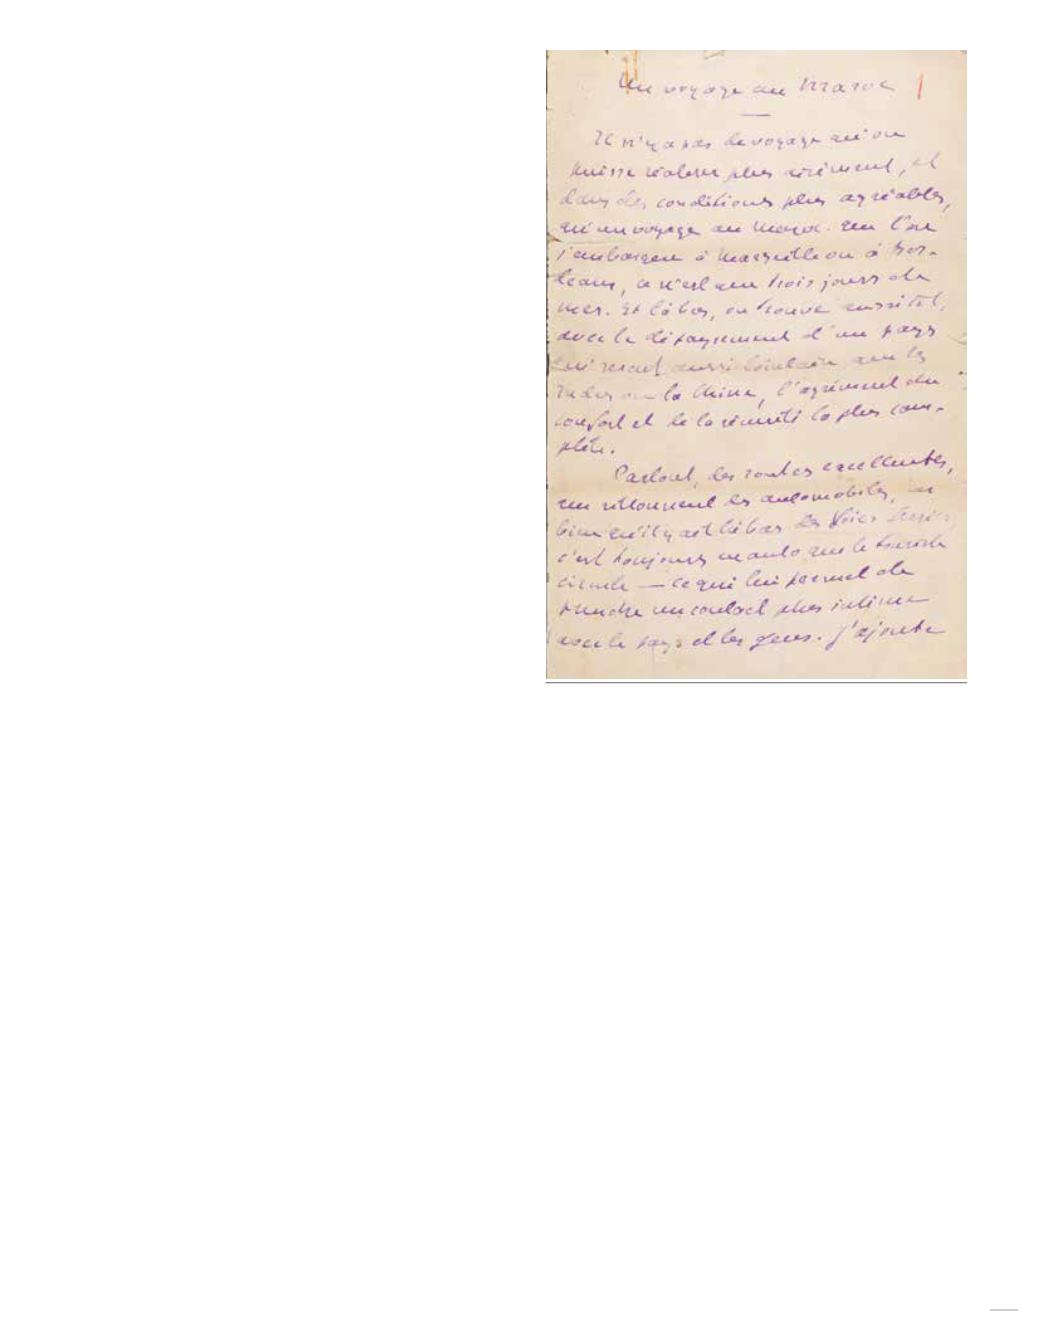 Un voyage au Maroc
Il n'y a pas de voyage qu'on
puisse réaliser plus aisément, et
dans des conditions plus agréables,
qu'un voyage au Maroc. Que l'on
s'embarque à Marseille ou à Bor-
deaux, ce n'est que trois jours de
mer. Et là-bas, on trouve aussitôt,
avec le dépaysement d'un pays
qui serait aussi lointain que les
Indes ou la Chine, l'agrément du
confort et de la sécurité la plus com-
plète.
Partout, des routes excellentes,
que sillonnent des automobiles,
bien qu'il y ait là-bas des voies ferrées,
c'est toujours en auto que le touriste
circule — ce qui lui permet de
prendre un contact plus intime
avec le pays et les gens. J'ajoute